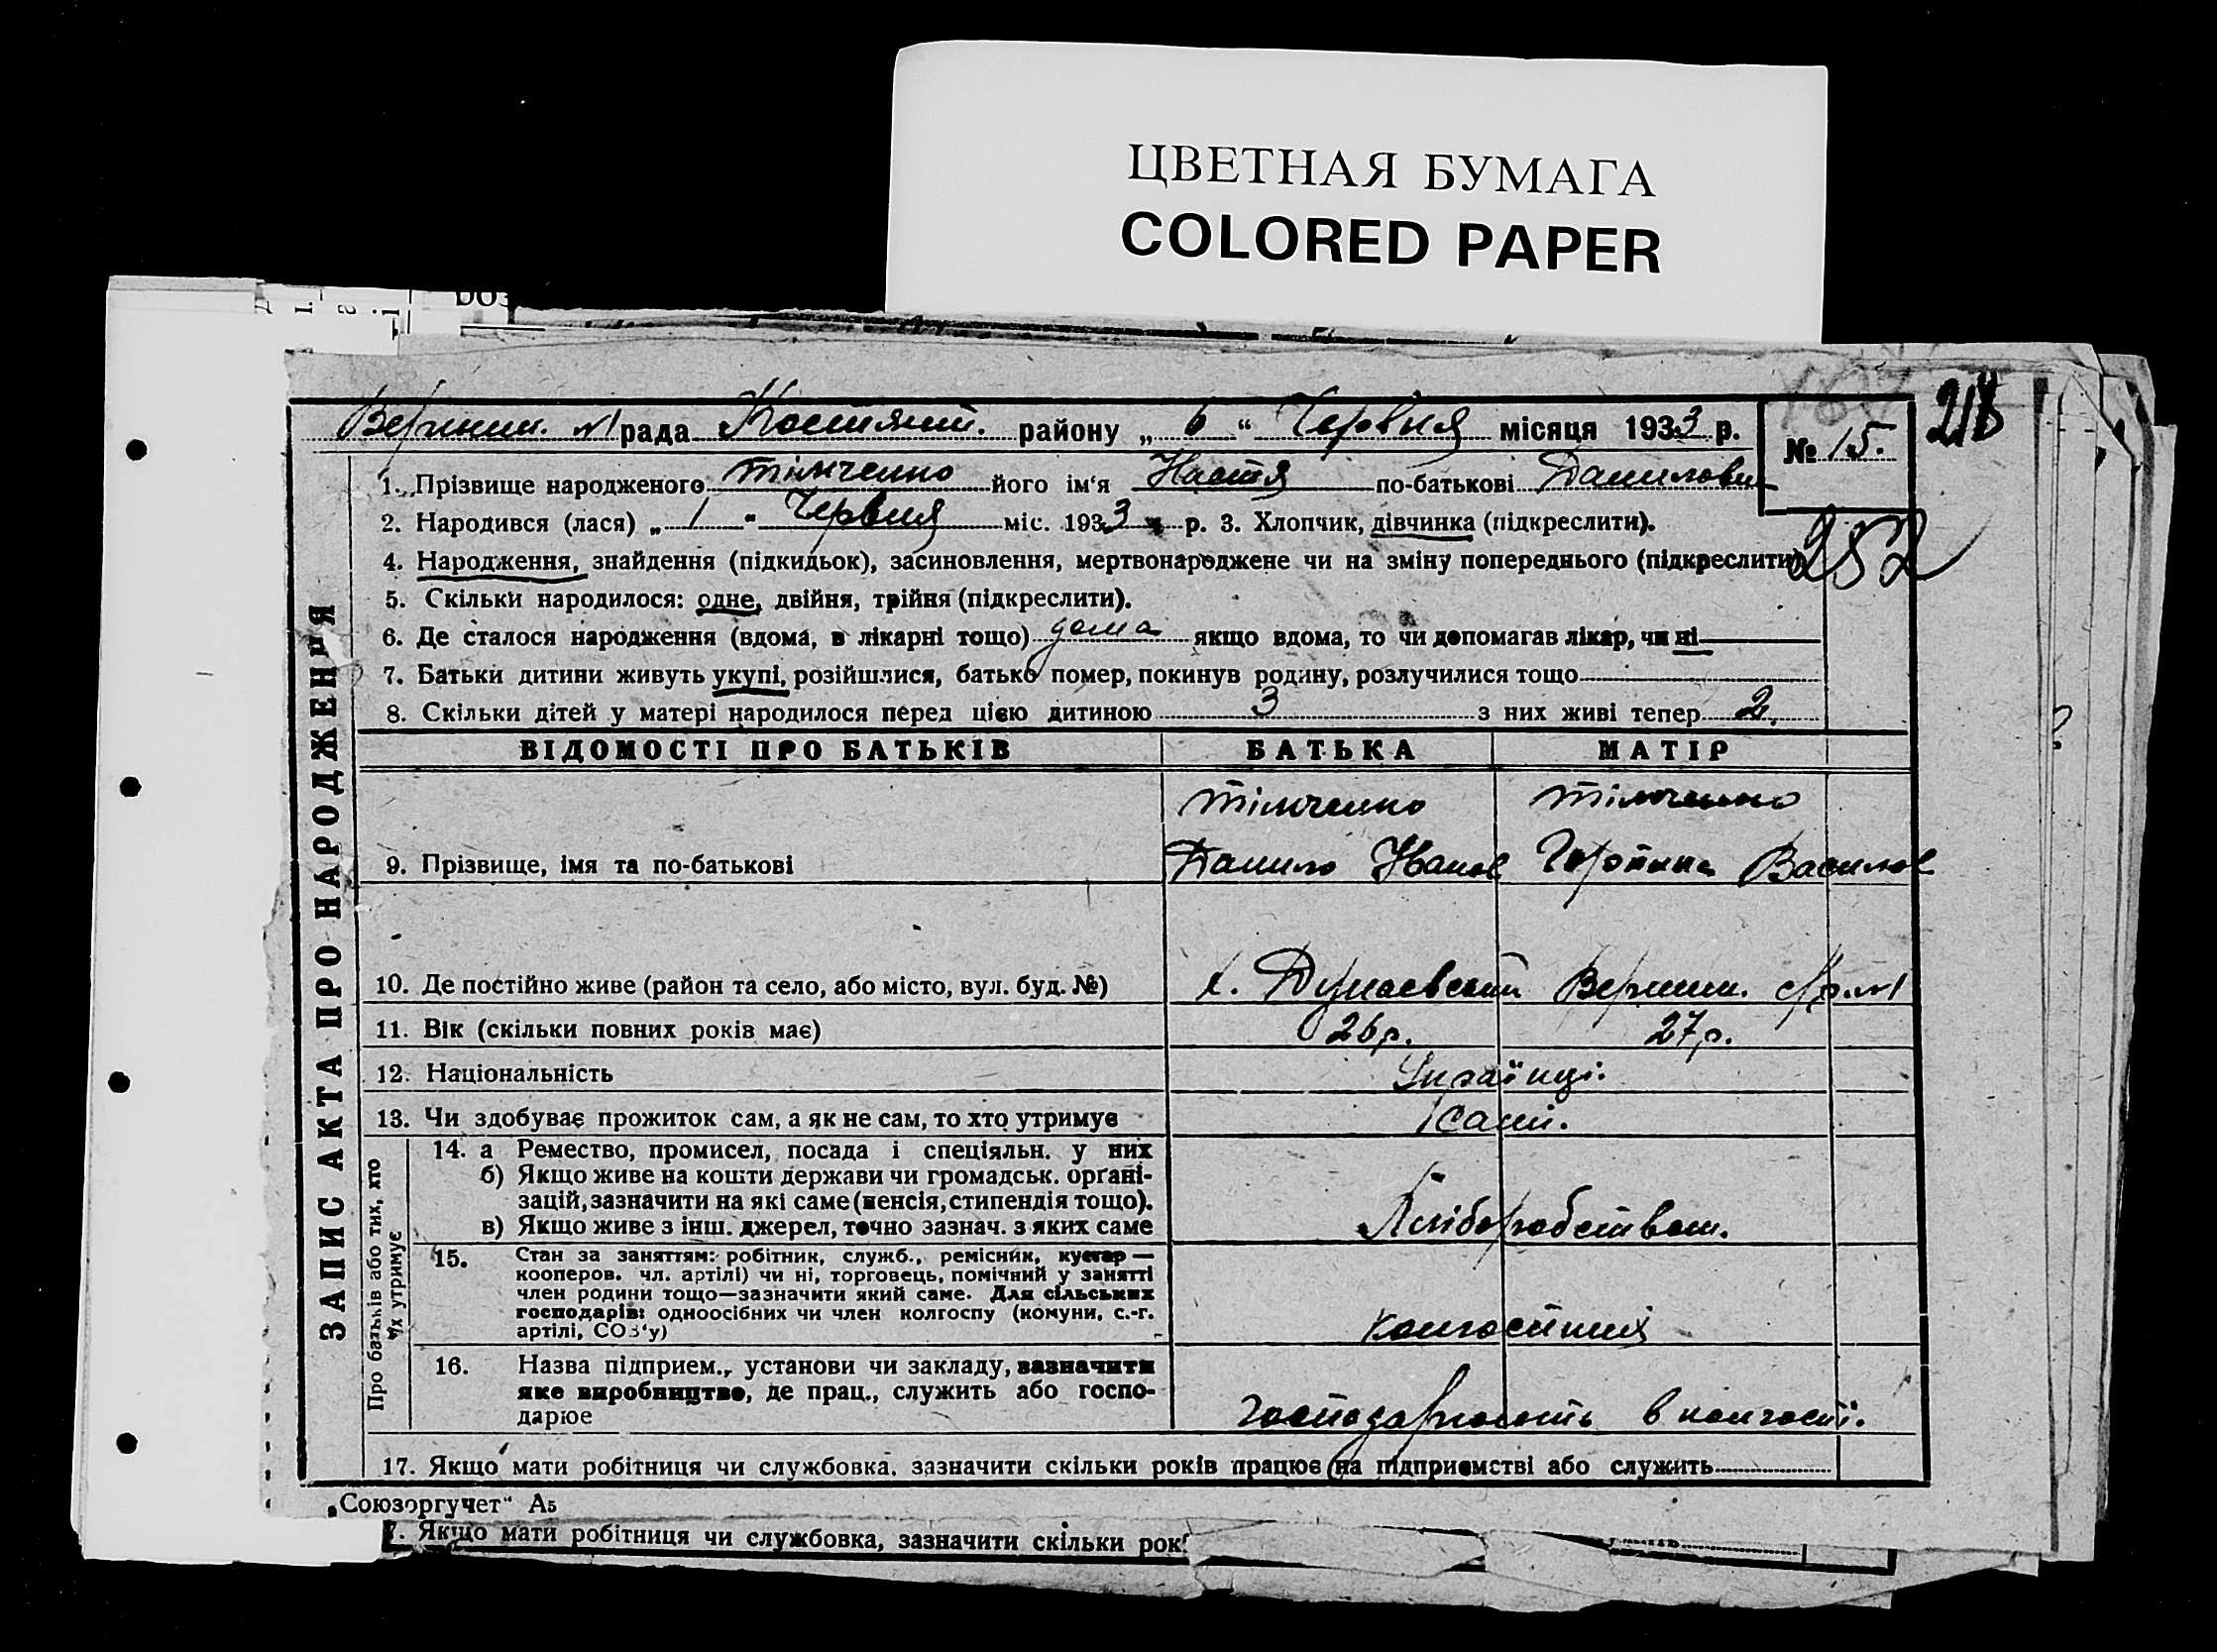 ЦВЕТНАЯ БУМАГА
COLORED PAPER
218
Вершин. №1 рада Костянт. району „ 6 “ Червня місяця 1933 р.
№ 15.
1. Прізвище народженого Тімченко його ім‘я Настя по-батькові Данилови
2. Народився (лася) „ 1 “ Червня міс. 1933 р. 3. Хлопчик, дівчинка (підкреслити).
252
4. Народження, знайдення (підкидьок), засиновлення, мертвонароджене чи на зміну попереднього (підкреслити)
5. Скільки народилося: одне, двійня, трійня (підкреслити).
6. Де сталося народження (вдома, в лікарні тощо) дома якщо вдома, то чи допомагав лікар, чи ні
7. Батьки дитини живуть укупі, розійшлися, батько помер, покинув родину, розлучилися тощо
8. Скільки дітей у матері народилося перед цією дитиною 3 з них живі тепер 2.
ЗАПИС АКТА ПРО НАРОДЖЕННЯ
ВІДОМОСТІ ПРО БАТЬКІВ БАТЬКА МАТІР
Тімченко Тімченко
9. Прізвище, імя та по-батькові Данило Іванов Горпина Василов
10. Де постійно живе (район та село, або місто, вул. буд. №) х. Вершин.
11. Вік (скільки повних років має) 26 р. 27 р.
12. Національність Українці.
13. Чи здобуває прожиток сам, а як не сам, то хто утримує Сами.
Про батьків або тих, хто
їх утримує
14. а Ремество, промисел, посада і спеціяльн. у них
б) Якщо живе на кошти держави чи громадськ. органі-
зацій, зазначити на які саме (пенсія, стипендія тощо).
в) Якщо живе з інш. джерел, точно зазнач. з яких саме Хліборобством.
15. Стан за заняттям: робітник, служб., ремісник, кустар —
кооперов. чл. артілі) чи ні, торговець, помічний у занятті
член родини тощо—зазначити який саме. Для сільських
господарів: одноосібних чи член колгоспу (комуни, с.-г.
артілі, СОЗ‘у) колгоспники
16. Назва підприєм., установи чи закладу, зазначити
яке виробництво, де прац., служить або госпо-
дарює господарюють в колгоспі.
17. Якщо мати робітниця чи службовка, зазначити скільки років працює на підприємстві або служить
„Союзоргучет“ А5
7. Якщо мати робітниця чи службовка, зазначити скільки рок